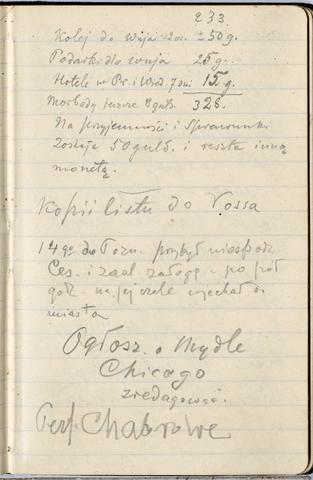 233.
Kolej do wuja 2a. = 50 g.
Podarki dla wuja 25 g.
Hotele w Pr. i Wied. 7 dni 15 g.
8 guld. 328.
Na przyjemności i sprawunki
zostaje 50 guld. i reszta inną
monetą.
Kopii listu do Vossa
14 go do Pozn. przybył niespodz.
Ces. i zaal. załogę - po pół
godz. na jej czele wjechał do
miasta
Ogłosz. o Mydle
Chicago
zredagować.
Perf. Chabrowe